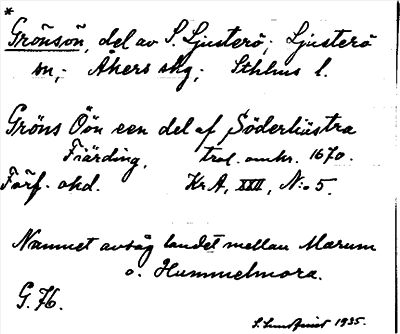 *
Grönsön, del av S. Ljusterö; Ljusterö
sn; Åkers skg; Sthlms l.
Gröns Öön een del af Söderlüstra
Fiärding, trol. omkr. 1670.
Förf. okd. Kr A, XXII, N:o 5.
Namnet avsåg landet mellan Marum
o. Hummelmora.
G. 76.
S. Lundquist 1935.